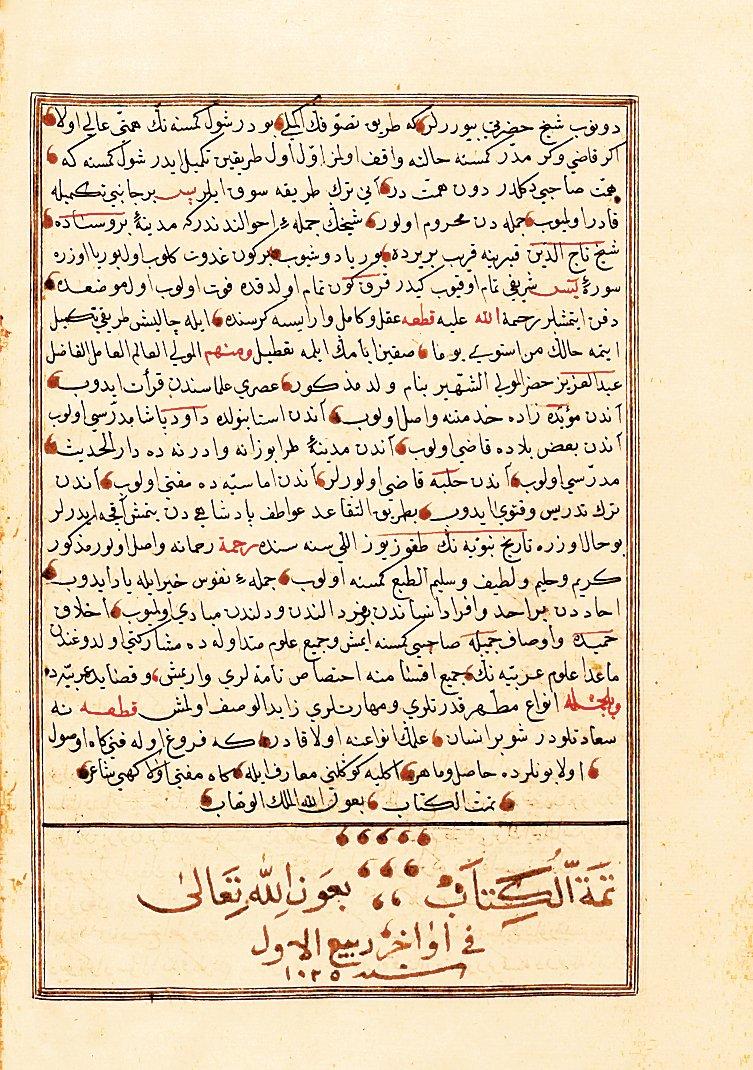 دونوب شيخ حضرتى بيوررلر كه طريق تصوفك اكملى بو در شول كمسنه نك همتى عالى اولا
اكر قاضى وكر مدرس كمسنه حالنه واقف اولمز اول اول طريقين تكميل ايدر شول كمسنه كه
همت صاحبى دكلدر دون همت در آنى ترك طريقه سوق ايلر پس بر جانبى تكميله
قادر اولميوب جمله دن محروم اولور شيخك جمله احوالندندر كه مدينۀ بروساده
شيخ تاج الدين قبرينه قريب بر يرده بوريا دوشيوب هر كون غدوت كلوب اول بوريا اوزره
سورۀ يس شريفى تمام اوقيوب كيدر قرق كون تمام اولدقده فوت اولوب اول موضعده
دفن ايتمشلر رحمة الله عليه قطعه عقل وكامل وار ايسه كرسنده ايله چاليش طريقى تكميل
ايتمه حالك من استوى يوما صقين ايامك ايلمه تعطيل ومنهم المولى العالم العامل الفاضل
عبد العزيز حضر المولى الشهير بنام ولد مذكور عصرى علماسندن قرأت ايدوب
آندن مؤيد زاده خدمتنه واصل اولوب آندن استانبولده داود پاشا مدرسى اولوب
آندن بعض بلاده قاضى اولوب آندن مدينۀ طرابوزانه وادرنه ده دار الحديث
مدرسى اولوب آندن حلبه قاضى اولورلر آندن اماسيه ده مفتى اولوب آندن
ترك تدريس وفتوى ايدوب بطريق التقاعد عواطف پادشاهى دن يتمش آقچه ايدرلر
بو حال اوزره تاريخ نبويه نك طقوز يوز اللى سنه سنده رحمة رحمانه واصل اولور مذكور
كريم وحليم ولطيف وسليم الطبع كمسنه اولوب جملۀ نفوس خير ايله ياد ايدوب
احاد دن بر احد وافراد انساندن بر فرد الندن ودلندن مبادى اولميوب اخلاق
حميده واوصاف جميله صاحبى كمسنه ايمش وجميع علوم متداوله ده مشاركتى اولدوغندن
ماعدا علوم عربيه نك جميع اقسامنه اختصاص تامه لرى وار ايمش وقصايد عربيه ده
وبالجمله انواع مظهر قدرتلرى ومهارتلرى زايد الوصف اولمش قطعه نه
سعادتلودر شو بر انسان علمك انواعنه اولا قادر كه فروغ اوله فنى كاه اوصول
اولا بونلرده حاصل وماهر اكليه كوكلنى معارف ايله كاه مفتى اولا كهى شاعر
تمت الكتاب بعون الله الملك الوهاب
تمة الكتاب بعون الله تعالى
فى اواخر ربيع الاول
سنه ١٠٢٥